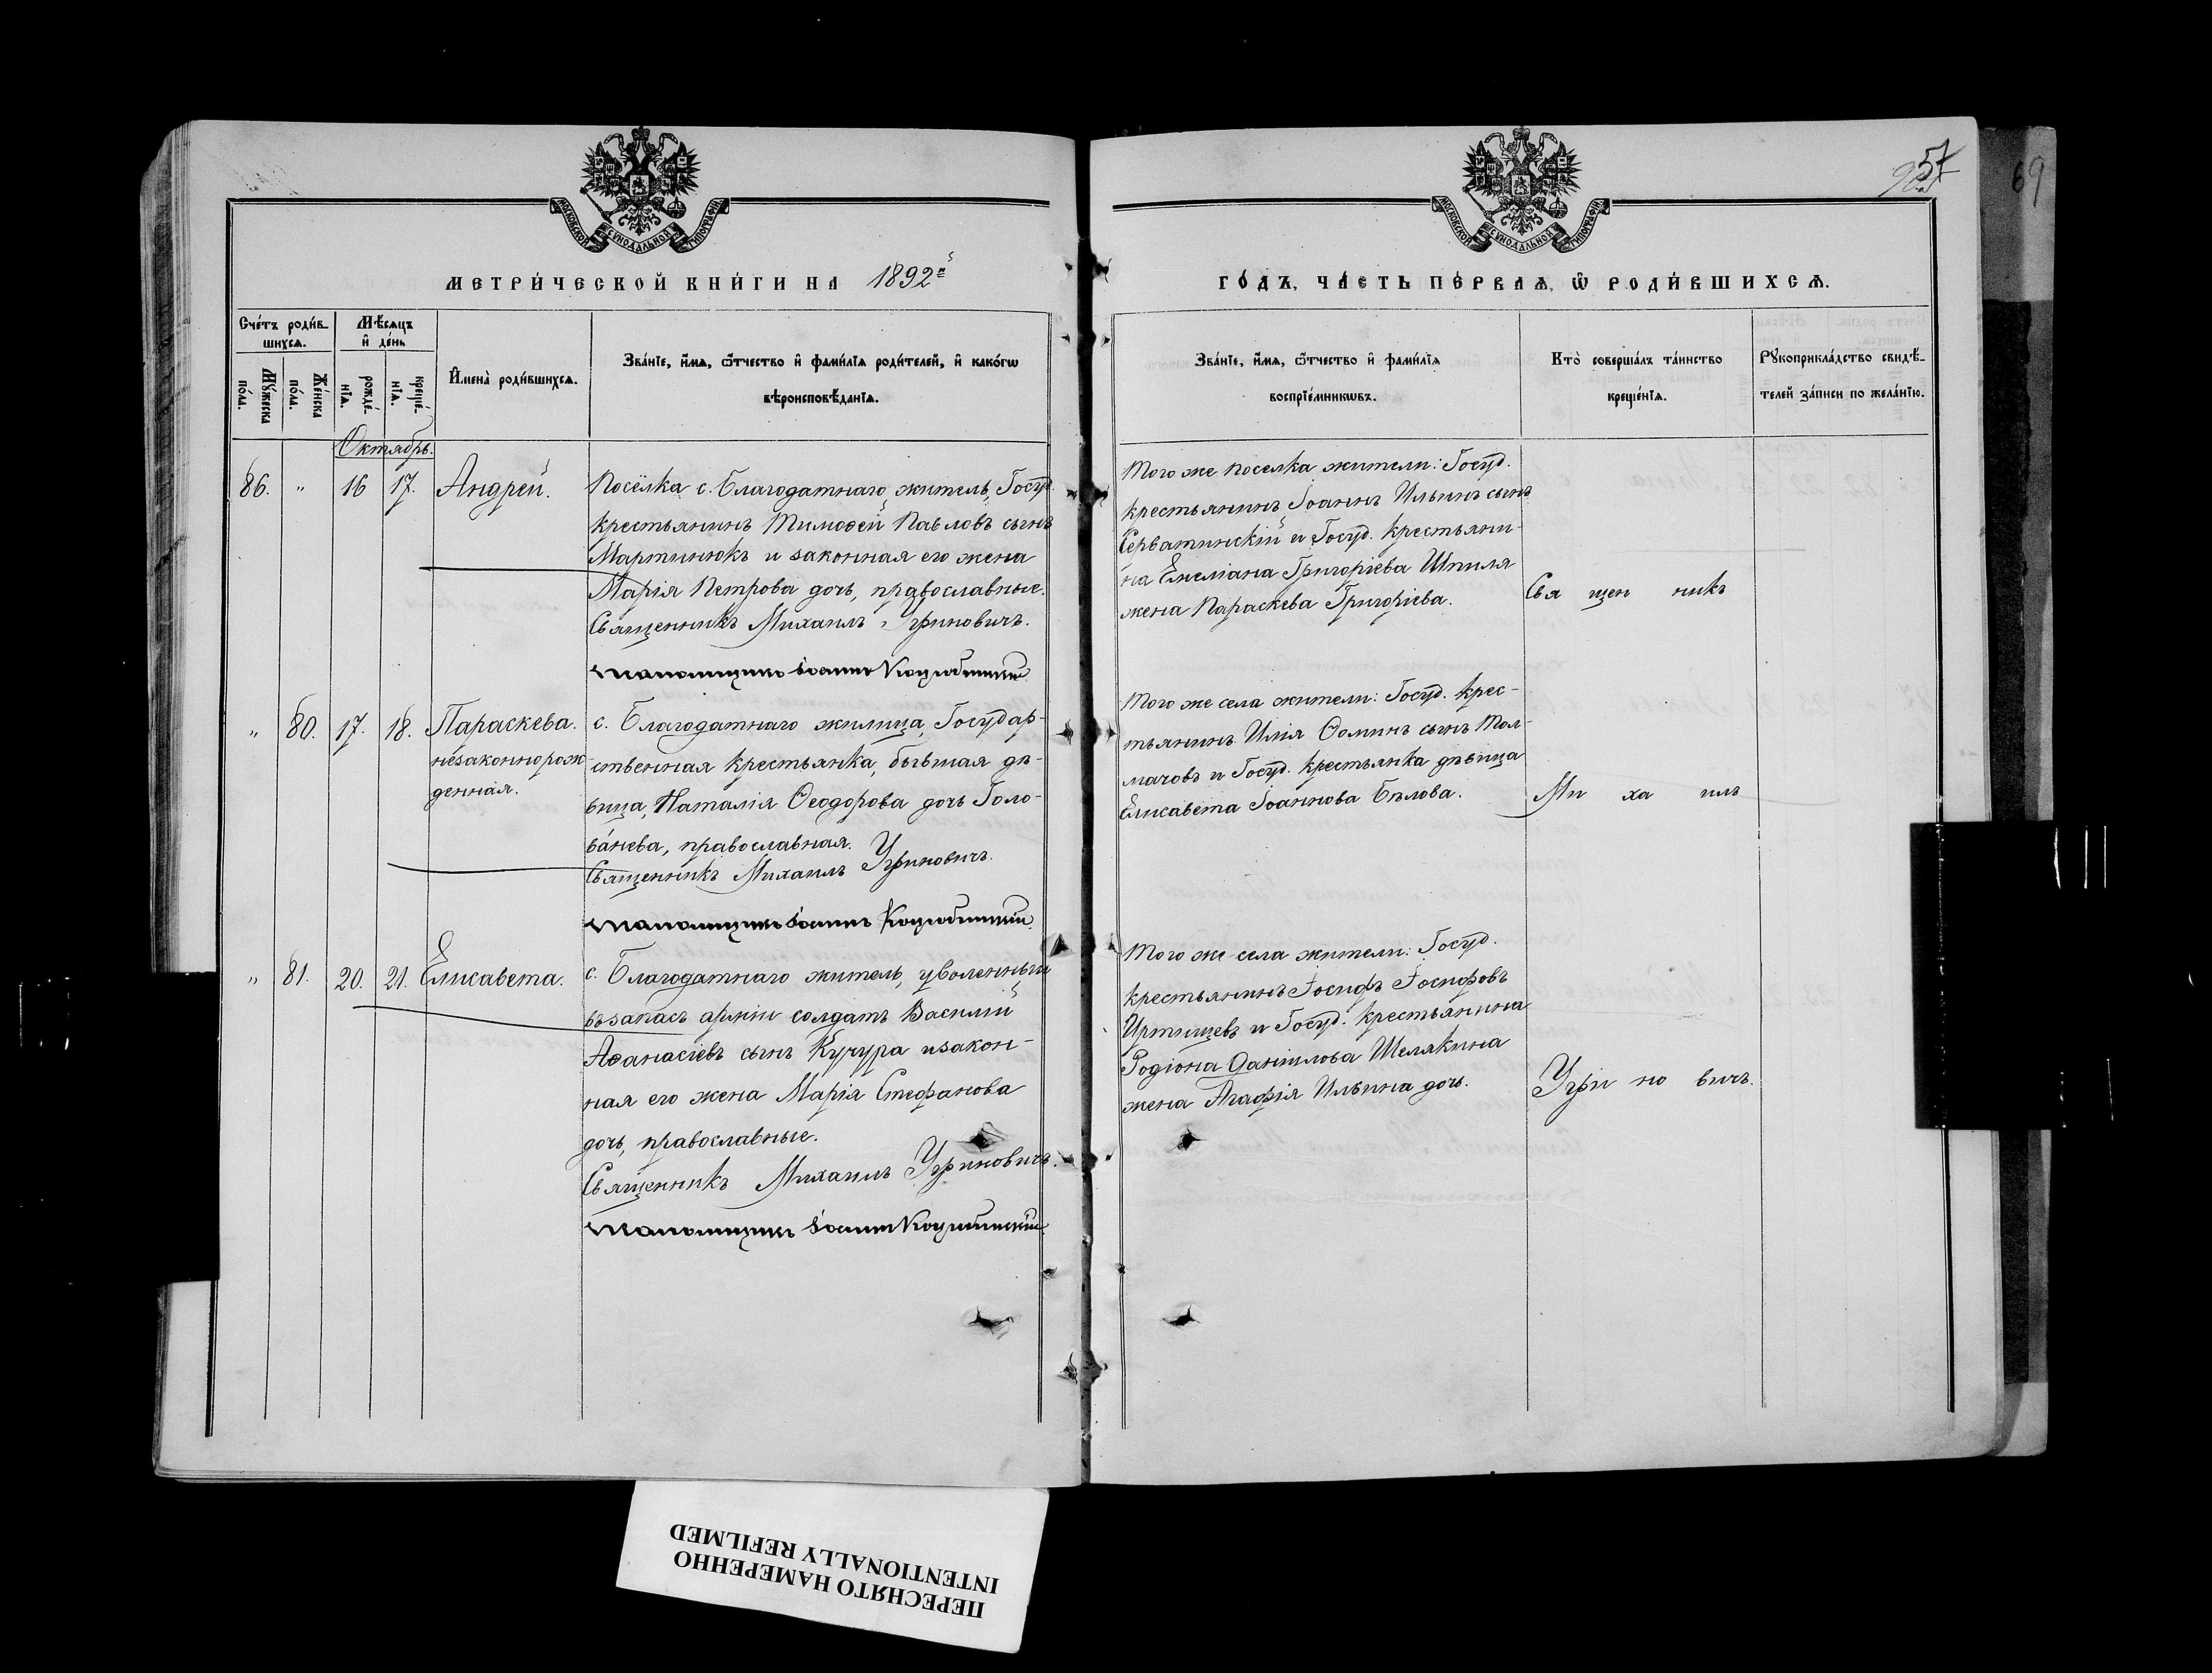 МОСКОВСКОЙ СѴНОДАЛЬНОЙ ТИПОГРАФІИ
МЕТРИ́ЧЕСКОЙ КНИ́ГИ НА 1892й
Сче́тъ роди́в-
шихсѧ.
Мꙋ́жеска
по́ла.
Же́нска
по́ла.
Мѣ́сѧцъ
и҆ де́нь
рожде́-
нїѧ.
креще́-
нїѧ.
И҆мена̀ роди́вшихсѧ.
Зва́нїе, и҆́мѧ, ѻ҆́тчество и҆ фами́лїѧ роди́телей, и҆ како́гѡ
вѣроисповѣ́данїѧ.
Октябрь.
86. " 16 17. Андрей.
Посёлка с. Благодатнаго, житель, Госуд.
крестьянинъ, Тимоѳей Павловъ сынъ
Мартинюкъ и законная его жена
Марія Петрова дочь, православные.
Священникъ Михаилъ Угриновичъ.
Псаломщикъ Іоаннъ Коцюбинскій
" 80. 17. 18. Параскева.
незаконнорож-
денная.
с. Благодатнаго жилица, Государ-
ственная крестьянка, бывшая дѣ-
вица, Наталія Ѳеодорова дочь Голо-
ва́нева, православная.
Священникъ Михаилъ Угриновичъ.
Псаломщикъ Іоаннъ Коцюбинскій
" 81. 20. 21. Елисавета.
с. Благодатнаго житель, уволенный
въ запасъ арміи солдатъ Василій
Аѳанасіевъ сынъ Кучура и закон-
ная его жена Марія Стефанова
дочь, православные.
Священникъ Михаилъ Угриновичъ.
Псаломщикъ Іоаннъ Коцюбинскій
57
69
МОСКОВСКОЙ СѴНОДАЛЬНОЙ ТИПОГРАФІИ
ГО́ДЪ, ЧА́СТЬ ПЕ́РВАѦ, Ѡ҆ РОДИ́ВШИХСѦ.
Зва́нїе, и҆́мѧ, ѻ҆́тчество и҆ фами́лїѧ
воспрїе́мникѡвъ.
Кто̀ соверша́лъ та́инство
креще́нїѧ.
Рꙋкоприкла́дство свидѣ́-
телей за́писи по жела́нїю.
Того же поселка жители: Госуд.
крестьянинъ, Іоаннъ Ильинъ сынъ
Серватинскій и Госуд. крестьяни-
на Емеліана Григоріева Шпиля
жена Параскева Григоріева.
Свя щен никъ
Того же села жители: Госуд. крес-
тьянинъ Илія Ѳоминъ сынъ Тол-
мачовъ и Госуд. крестьянка дѣвица
Елисавета Іоаннова Бѣлова.
Ми ха илъ
Того же села жители: Госуд.
крестьянинъ Іосифъ Іосифовъ
Иртищевъ и Госуд. крестьянина
Родіона Даніилова Шелякина
жена Агафія Ильина дочь.
Угри но вичъ.
ПЕРЕСНЯТО НАМЕРЕННО
INTENTIONALLY REFILMED